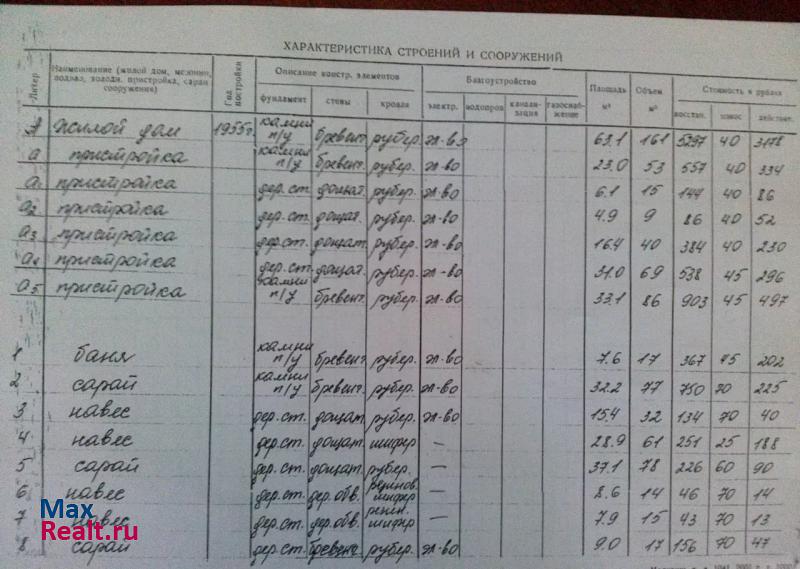 ХАРАКТЕРИСТИКА СТРОЕНИЙ И СООРУЖЕНИЙ
Литер Наименование (жилой дом, мезонин, подвал, холодн. пристройка, сарай сооружения) Год постройки Описание констр. элементов Благоустройство Площадь м² Объем м³ Стоимость в рублях
фундамент стены кровля электр. водопров. канализация газоснабжение восстан. износ действит.
А жилой дом 1955г. камни п/у бревенч. рубер. эл-во 63.1 161 5297 40 3178
а пристройка камни п/у бревенч. рубер. эл-во 23.0 53 557 40 334
а1 пристройка дер.ст. дощат. рубер. эл-во 6.1 15 144 40 86
а2 пристройка дер.ст. дощат. рубер. эл-во 4.9 9 86 40 52
а3 пристройка дер.ст. дощат. рубер. эл-во 16.4 40 384 40 230
а4 пристройка дер.ст. дощат. рубер. эл-во 31.0 69 538 45 296
а5 пристройка камни п/у бревенч. рубер. эл-во 33.1 86 903 45 497
1 баня камни п/у бревенч. рубер. эл-во 7.6 17 367 45 202
2 сарай камни п/у бревенч. рубер. эл-во 32.2 77 750 70 225
3 навес дер.ст. дощат. рубер. эл-во 15.4 32 134 70 40
4 навес дер.ст. дощат. шифер — 28.9 61 251 25 188
5 сарай дер.ст. дощат. рубер. — 37.1 78 226 60 90
6 навес дер.ст. дер.обв. шифер — 8.6 14 46 70 14
7 навес дер.ст. дер.обв. шифер — 7.9 15 43 70 13
8 сарай дер.ст. бревенч. рубер. эл-во 9.0 17 156 70 47
Max
Realt.ru